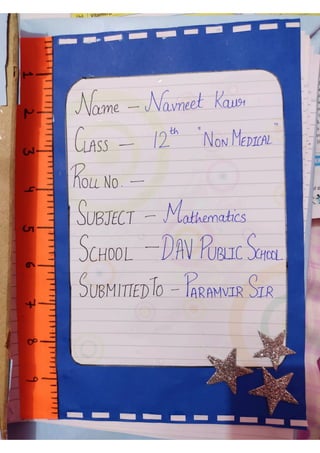 Name - Navneet Kaur
CLASS - 12th "NON MEDICAL"
ROLL NO. -
SUBJECT - Mathematics
SCHOOL - DAV PUBLIC SCHOOL
SUBMITTED TO - PARAMVIR SIR
1
2
3
4
5
6
7
8
9